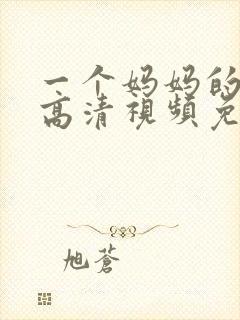 一个妈妈的
高清視頻免
旭蒼